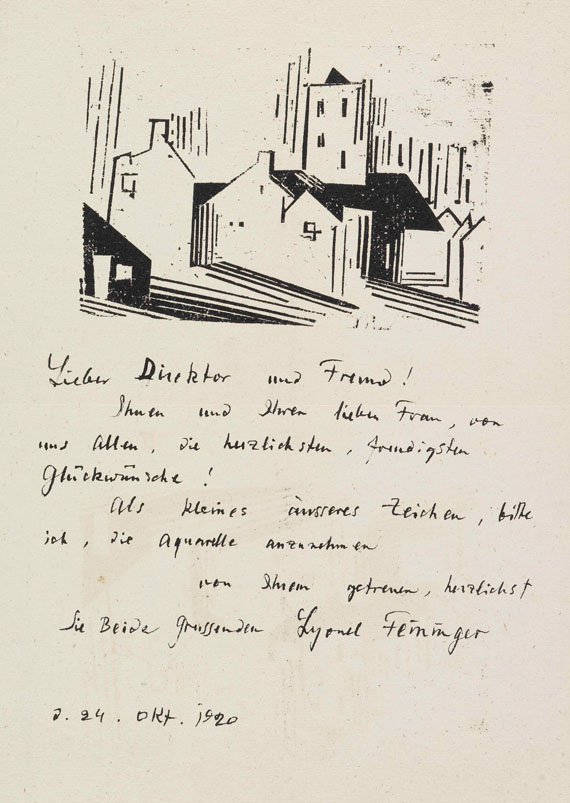 Lieber Direktor und Freund!
Ihnen und Ihrer lieben Frau, von
uns Allen, die herzlichsten, freudigsten
Glückwünsche!
Als kleines äusseres Zeichen, bitte
ich, die Aquarelle anzunehmen
von Ihrem getreuen, herzlichst
Sie Beide grussenden Lyonel Feininger
d. 24. Okt. 1920